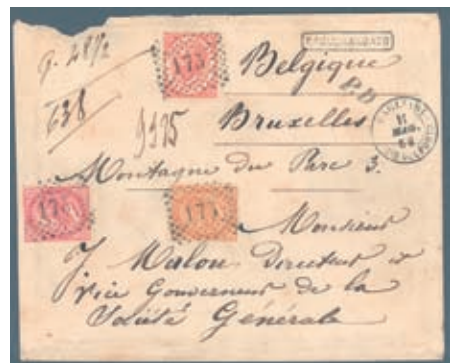 g. 28 1/2
638
9375
173
Belgique
P.D.
Bruxelles
11
Montagne du Parc 3.
Monsieur
J Malou Directeur &
Vice Gouverneur de la
Société Générale